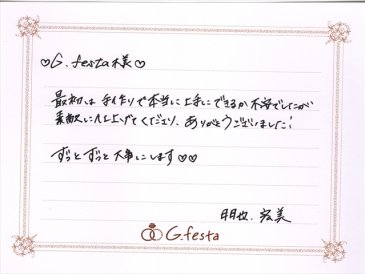 ♡G.festa様♡
最初は手作りで本当に上手にできるか不安でしたが
素敵に仕上げてくださり、ありがとうございました!
ずっとずっと大事にします♡♡
明也.宏美
G.festa